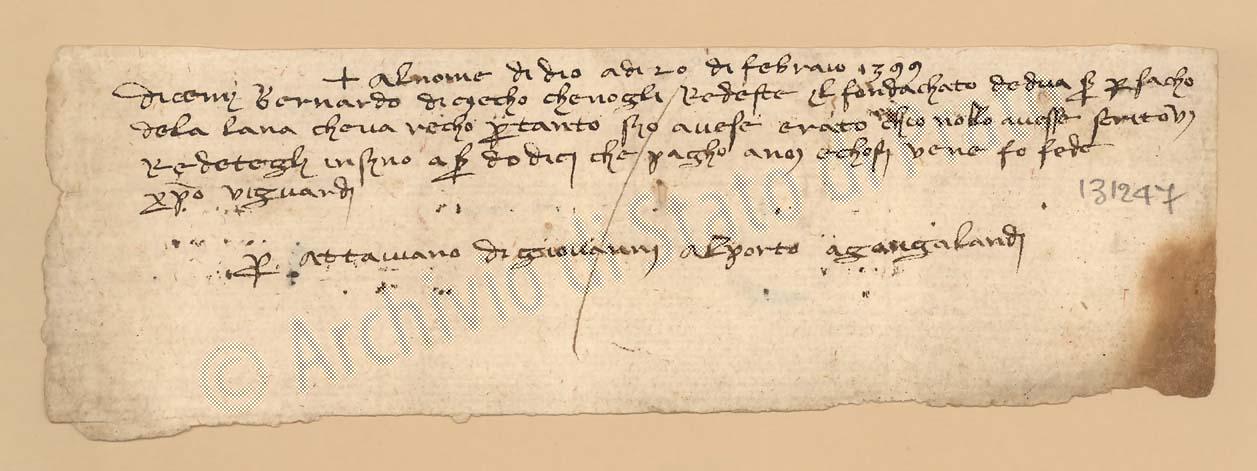 + al nome di dio a di 20 di febraio 1399
dicemi Bernardo di ciecho che vogli Redeste il fondachato de dua s. p. sacho
dela lana che va recho p. tanto s'io avese erato esio nollo avesse scrito
Redetegli insino a s. dodici che pagho ano e chosi vene fo fede
xpo vi guardi
131247
p. Attaviano di giovanni al porto a gangalandi
© Archivio di Stato di Prato